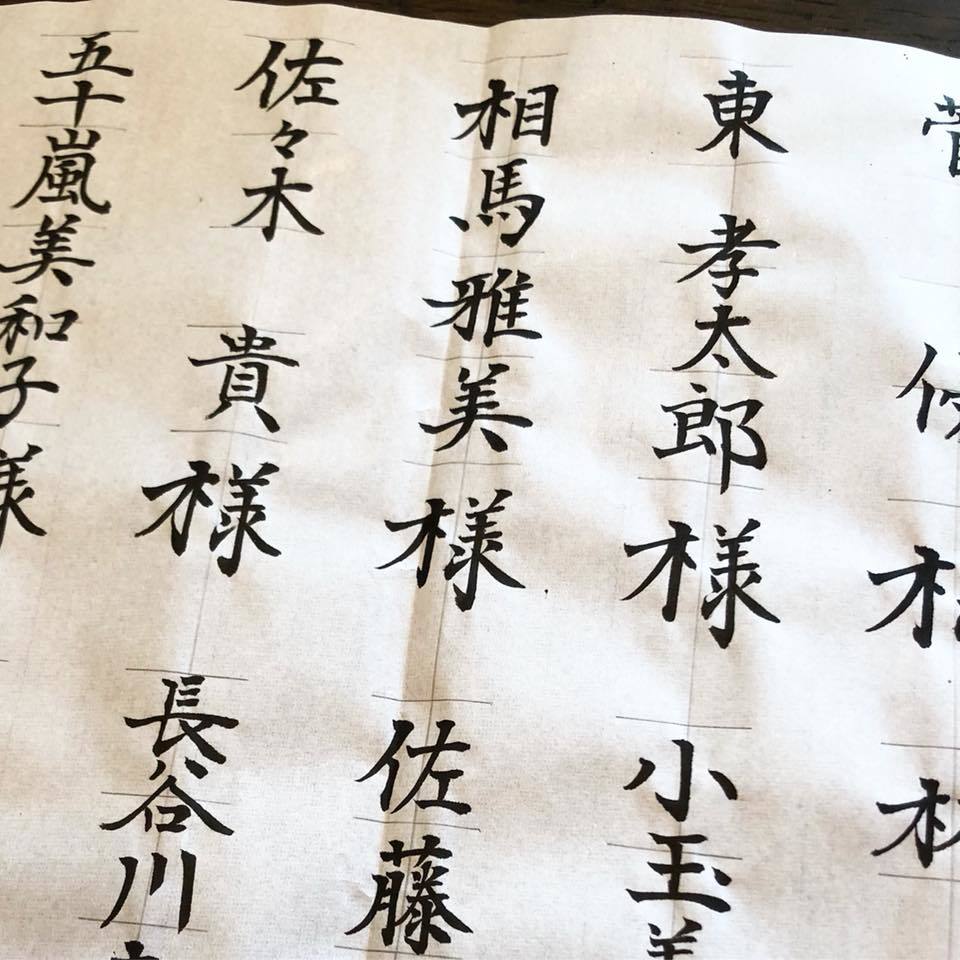 東 孝太郎 様
相馬雅美 様
佐々木 貴 様
五十嵐美和子 様
小玉美
佐藤
長谷川